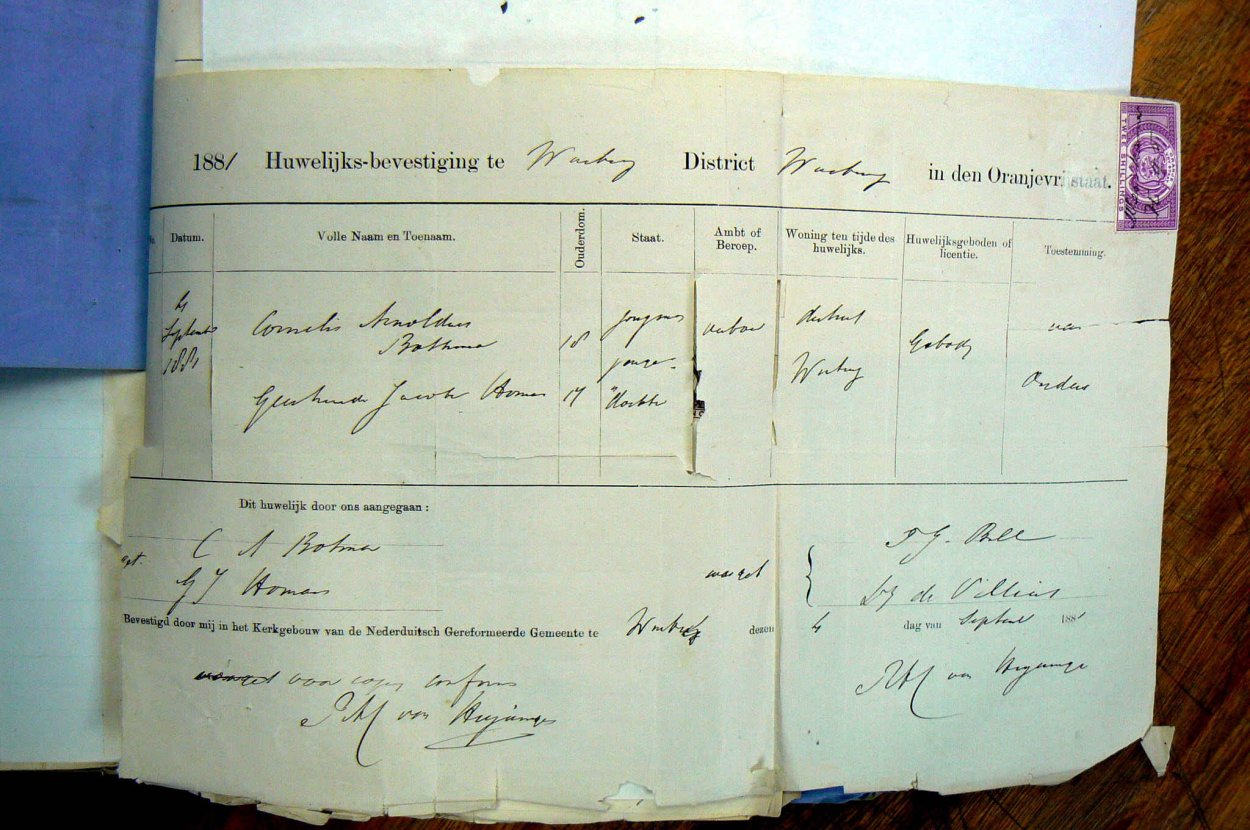 1881 Huwelijks-bevestiging te Winburg District Winburg in den Oranjevrijstaat.
TWEE SHILLINGS
Datum. Volle Naam en Toenaam. Ouderdom. Staat. Ambt of Beroep. Woning ten tijde des huwelijks. Huwelijksgeboden of licentie. Toestemming.
4
September
1881
Cornelis Arnoldus
Bothma 18
district
Winburg
Geboden
van
Ouders
Jacoba Homan 17
Dit huwelijk door ons aangegaan :
C A Botma
get.
G J Homan
was get
de Villiers
Bevestigd door mij in het Kerkgebouw van de Nederduitsch Gereformeerde Gemeente te Winburg dezen 4 dag van September 1881
voor copy conform
van
van